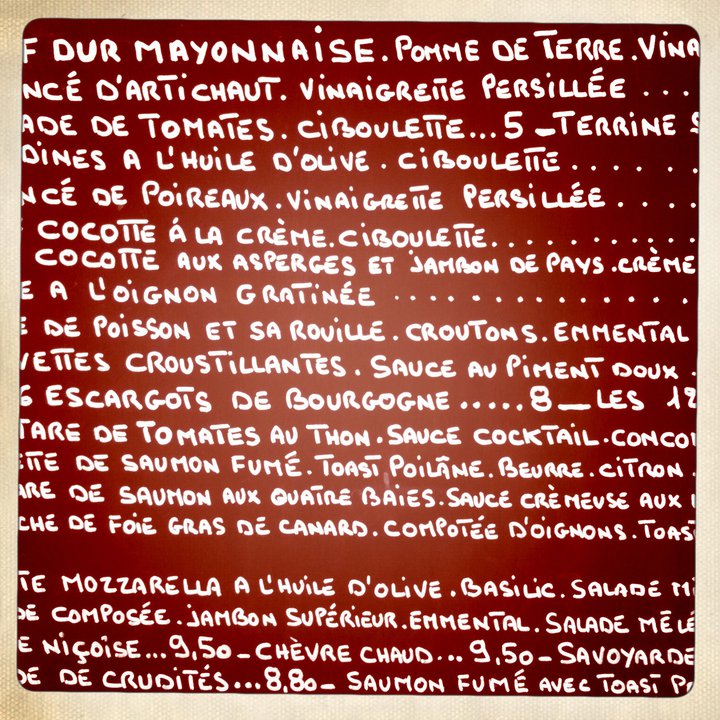 F DUR MAYONNAISE.POMME DE TERRE.VINA
NCÉ D'ARTICHAUT. VINAIGRETTE PERSILLÉE ...
ADE DE TOMATES. CIBOULETTE...5 _TERRINE S
DINES A L'HUILE D'OLIVE. CIBOULETTE......
NCÉ DE POIREAUX.VINAIGRETTE PERSILLÉE....
COCOTTE À LA CRÈME.CIBOULETTE...........
COCOTTE AUX ASPERGES ET JAMBON DE PAYS.CRÈME
E A L'OIGNON GRATINÉE ...............
E DE POISSON ET SA ROUILLE.CROUTONS.EMMENTAL
VETTES CROUSTILLANTES. SAUCE AU PIMENT DOUX.
6 ESCARGOTS DE BOURGOGNE.....8_LES 12
TARE DE TOMATES AU THON.SAUCE COCKTAIL.CONCO
TTE DE SAUMON FUMÉ.TOAST POILÂNE.BEURRE.CITRON.
ARE DE SAUMON AUX QUATRE BAIES.SAUCE CRÈMEUSE AUX
CHE DE FOIE GRAS DE CANARD.COMPOTÉE D'OIGNONS.TOAST
TE MOZZARELLA A L'HUILE D'OLIVE.BASILIC.SALADE MÊ
DE COMPOSÉE.JAMBON SUPÉRIEUR.EMMENTAL.SALADE MÊLÉ
E NIÇOISE...9,50_CHÈVRE CHAUD...9,50_SAVOYARDE
DE DE CRUDITÉS...8,80_ SAUMON FUMÉ AVEC TOAST P